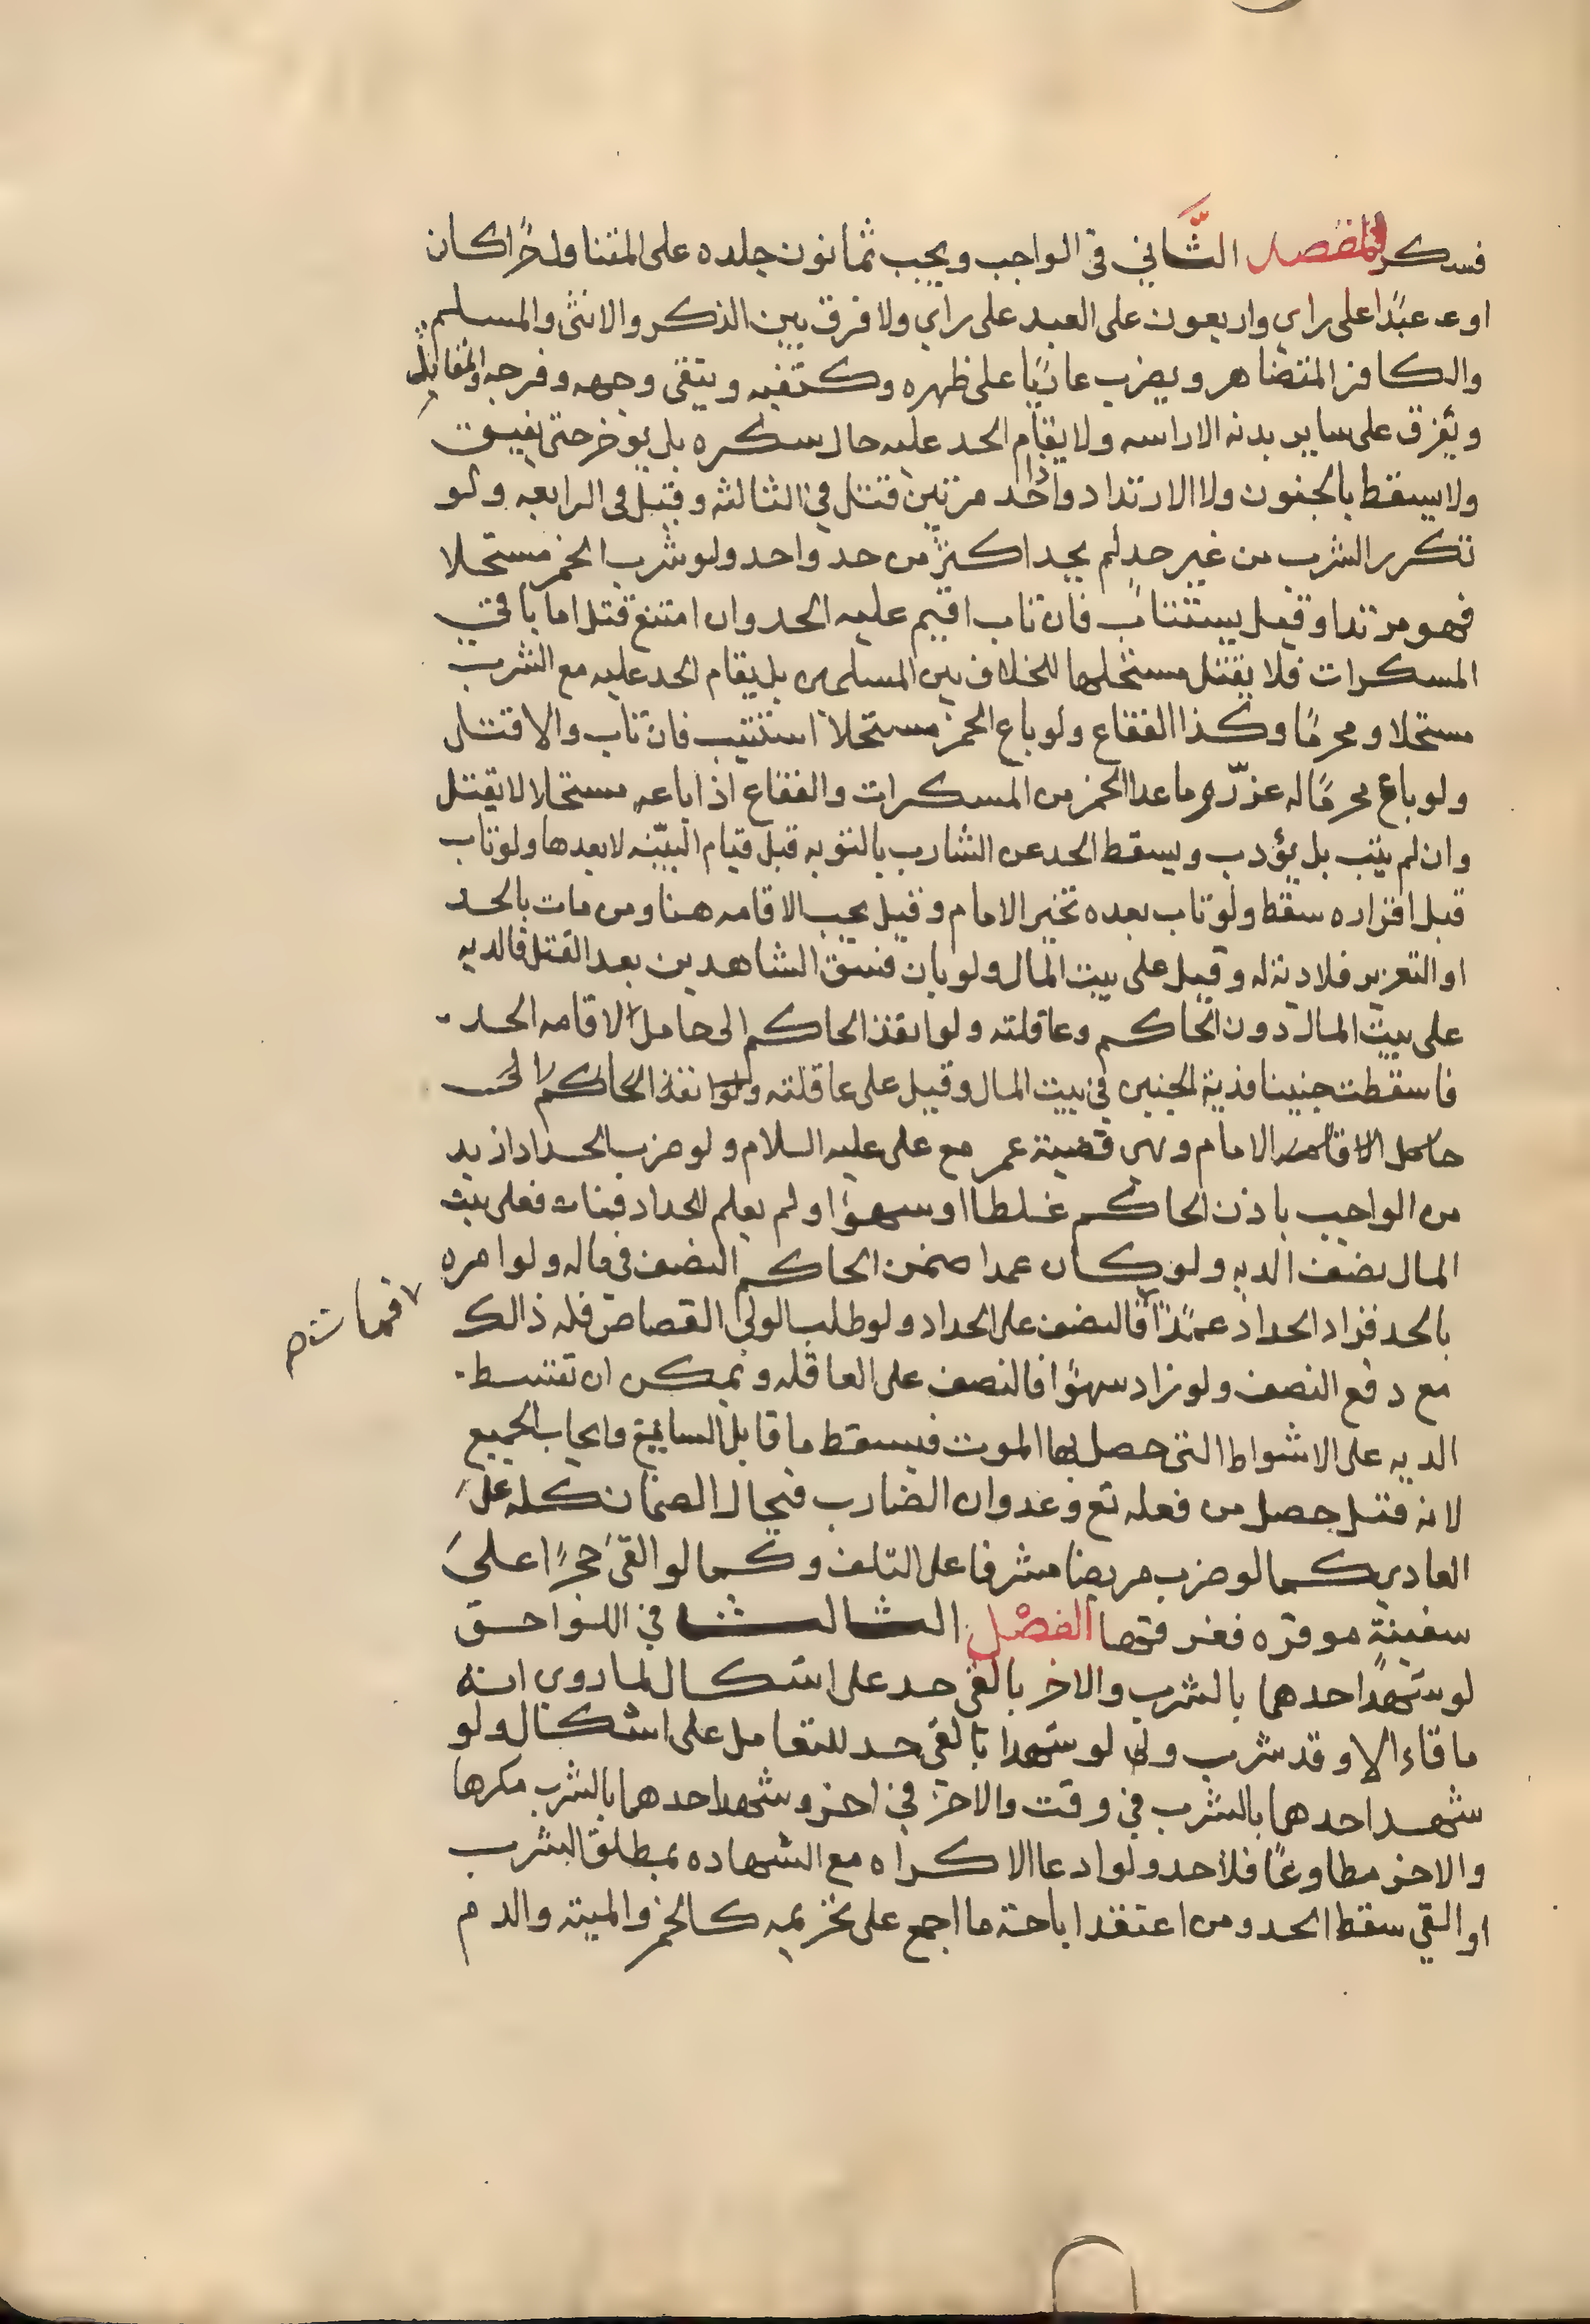 فسكر الفصل الثاني في الواجب ويجب ثمانون جلده على المتناول حرًا كان
او عبدًا على راي واربعون على العبد على راي ولا فرق بين الذكر والانثى والمسلم
والكافر المتضاهر ويضرب عاريًا على ظهره وكتفيه ويتقى وجهه وفرجه والمقاتل
ويفرق على ساير بدنه الا راسه ولا يقام الحد عليه حال سكره بل يوخر حتى يفيق
ولا يسقط بالجنون ولا الارتداد واذا حد مرتين قتل في الثالثه وقيل في الرابعه ولو
تكرر الشرب من غير حد لم يحد اكثر من حد واحد ولو شرب الخمر مستحلا
فهو مرتد او قيل يستتاب فان تاب اقيم عليه الحد وان امتنع قتل اما باقي
المسكرات فلا يقتل مستحلها للخلاف بين المسلمين بل يقام الحد عليه مع الشرب
مستحلا ومحرمًا وكذا الفقاع ولو باع الخمر مستحلا استتيب فان تاب والا قتل
ولو باع محرمًا له عزّر وما عدا الخمر من المسكرات والفقاع اذا باعه مستحلا لا يقتل
وان لم يتب بل يؤدب ويسقط الحد عن الشارب بالتوبه قبل قيام البيّنه لا بعدها ولو تاب
قبل اقراره سقط ولو تاب بعده تخير الامام وقيل يجب الاقامه هنا ومن مات بالحد
او التعزير فلا دية له وقيل على بيت المال ولو بان فسق الشاهدين بعد القتل فالديه
على بيت المال دون الحاكم وعاقلته ولو انفذ الحاكم الى حامل لاقامه الحد
فاسقطت جنينا فدية الجنين في بيت المال وقيل على عاقلته ولو انفذ الحاكم الى
حامل لاقامه الامام وهي قضية عمر مع علي عليه السلام ولو ضرب الحداد ازيد
من الواجب باذن الحاكم غلطا او سهوًا ولم يعلم الحداد فمات فعلى بيت
المال نصف الديه ولو كان عمدا ضمن الحاكم النصف في ماله ولو امره
بالحد فزاد الحداد عمدًا فالنصف على الحداد ولو طلب الولي القصاص فله ذالك
فمات صح
مع دفع النصف ولو زاد سهوًا فالنصف على العاقله ويمكن ان تقسط
الديه على الاشواط التي حصل بها الموت فيسقط ما قابل السايغ وايجاب الجميع
لانه قتل حصل من فعله تع وعدوان الضارب فيحال الضمان كله على
العادي كما لو ضرب مريضا مشرفا على التلف وكما لو القى حجرًا على
سفينة موقره فغرقتها الفصل الثالث في اللواحق
لو شهد احدهما بالشرب والاخر بالقي حد على اشكال لما روي انه
ما قاء الا وقد شرب ولو شهدا بالقي حد للتعامل على اشكال ولو
شهد احدهما بالشرب في وقت والاخر في اخر وشهد احدهما بالشرب مكرها
والاخر مطاوعًا فلا حد ولو ادعا الاكراه مع الشهاده بمطلق الشرب
او القي سقط الحد ومن اعتقد اباحة ما اجمع على تحريمه كالخمر والميته والدم